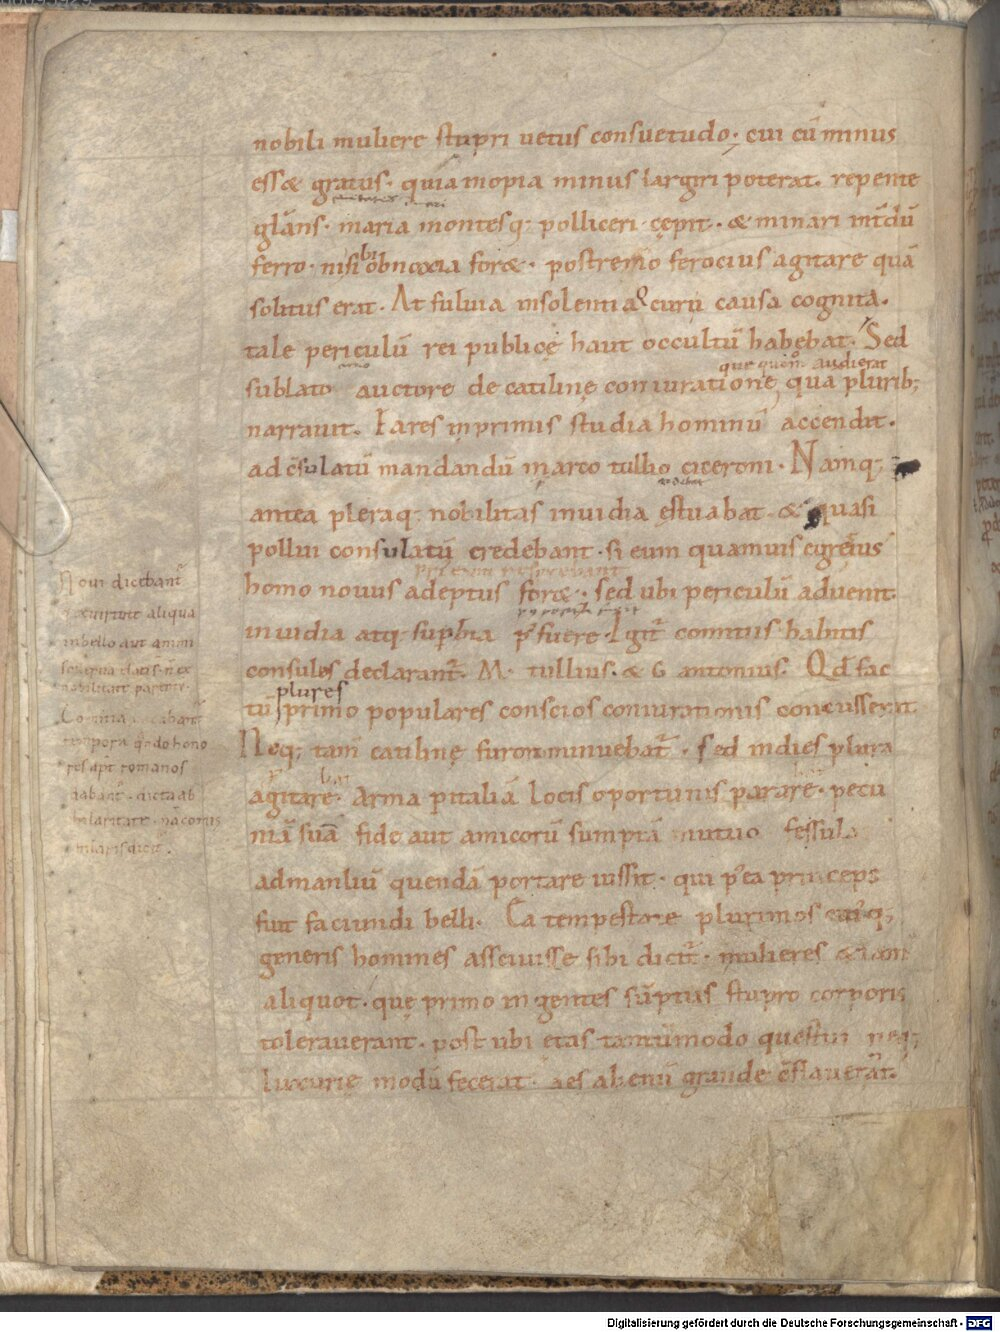 nobili muliere stupri uetus consuetudo· cui cū minus
ess& gratus· quia inopia minus largiri poterat· repente
glāns· maria montesq; polliceri cępit· & minari int̄dū
ferro· nisi sibi obnoxia for&· postremo ferocius agitare quā
solitus erat· At fuluia insolentiae curii causa cognita·
tale periculū rei publicę haut occultū habebat· Sed
que quom̊ audierat
sublato auctore de catilinę coniuratione, qua plurib;
narrauit· Ea res inprimis studia hominū accendit·
ad c̄sulatū mandandū marco tullio ciceroni· Namq;
antea pleraq; nobilitas inuidia ęstuabat· & quasi
pollui consulatū credebant· si eum quamuis egregius
homo nouus adeptus for&· sed ubi periculū aduenit·
inuidia atq; supbia p̄ fuere· Igit̄ comitiis habitis
consules declarant̄· M· tullius· & G antonius· Qd̄ fac
plures
tū primo populares conscios coniurationis concusserat
Neq; tam̄ catilinę furor minuebat̄· sed indies plura
agitare· Arma p italiā locis oportunis parare· pecu
niā suā fide aut amicorū sumptā mutuo fessula
ad manliū quendā portare iussit· qui p̄ea princeps
fuit faciundi belli· Ea tempestate plurimos cuiq;
generis homines assciuisse sibi dicit̄· mulieres &iam
aliquot· quę primo ingentes sūptus stupro corporis
tolerauerant· post ubi etas tantūmodo questui neq;
luxurię modū fecerat· aes alienū grande c̄flauerāt·
Noui dicebant̄
qui uirtute aliqua
in bello aut animi
nobilitate parentū·
tempora qn̄do hono
res apt̄ romanos
dabant̄· dicta ab
hilaritate· nā comis
hilaris dicit̄·
Digitalisierung gefördert durch die Deutsche Forschungsgemeinschaft - DFG